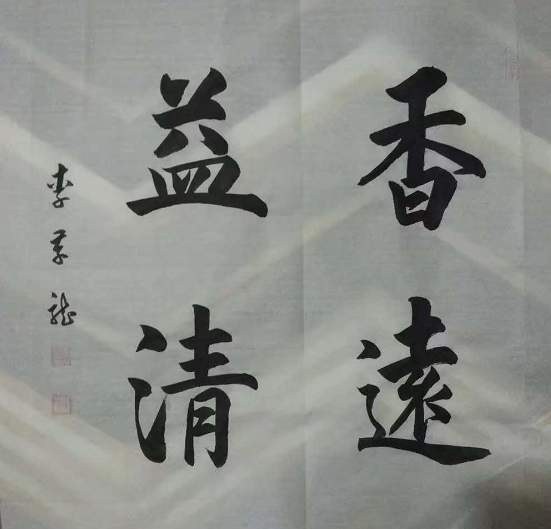 香遠
益清
李
龍